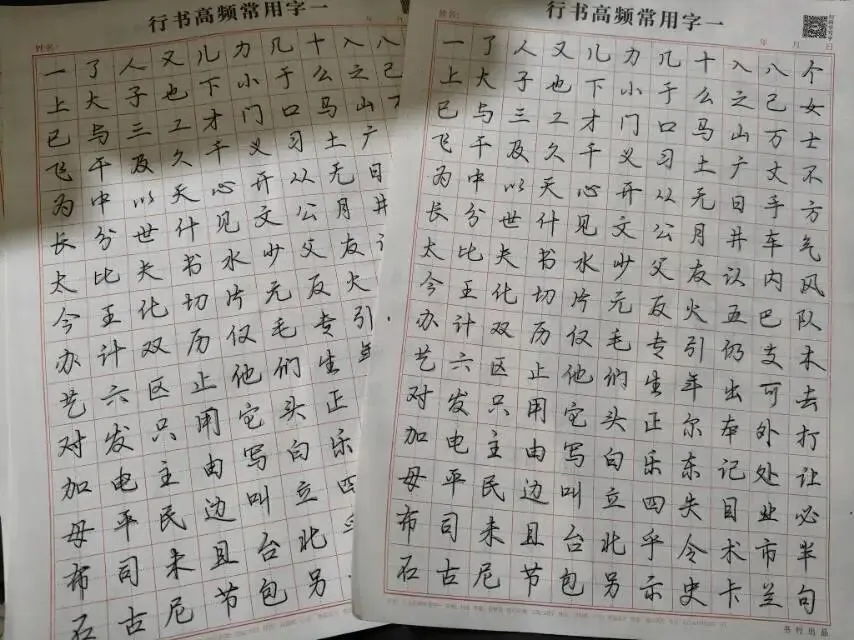 行书高频常用字一
姓名：
年
一了人又儿力几十入八
上大子也下小于么之己
已与三工才门口马山
飞干及久千义习土广
为中以天心开从无日
长分世什见文公月井
太比夫书水少父友
今王化切片元反火
办计双历仅毛专引
艺六区止他们生年
对发只用它头正
加电主由写白乐
母平民边叫立四
布司未且台北
石古尼节包另
行书高频常用字一
姓名：
年 月 日
一了人又儿力几十入八个
上大子也下小于么之己女
已与三工才门口马山万士
飞干及久千义习土广丈不
为中以天心开从无日手方
长分世什见文公月井车气
太比夫书水少父友认内风
今王化切片元反火五巴队
办计双历仅毛专引仍支木
艺六区止他们生年出可去
对发只用它头正尔本外打
加电主由写白乐东记处让
母平民边叫立四失目业必
布司未且台北乎令术市半
石古尼节包另示史卡兰句